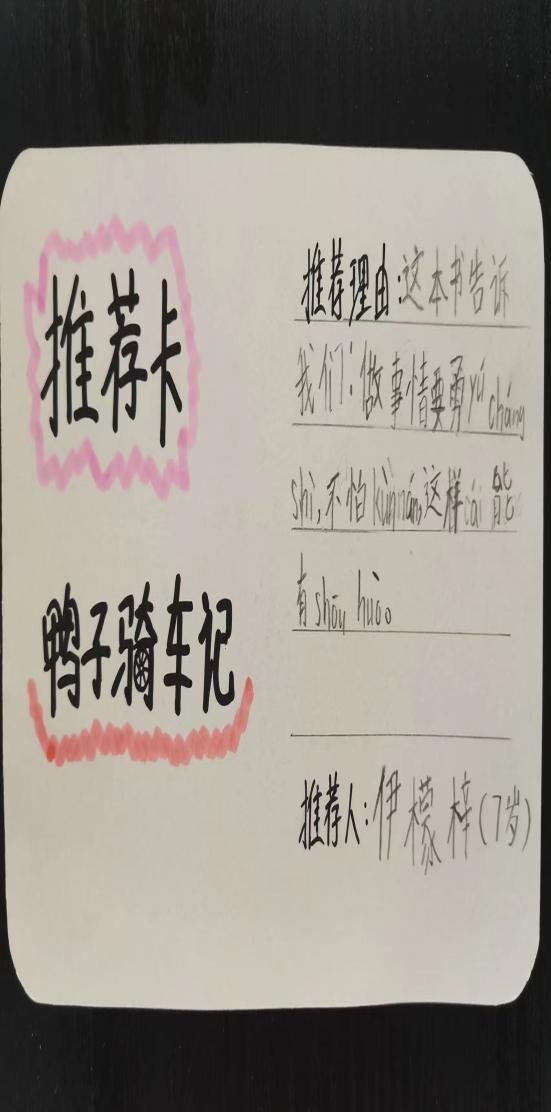 推荐卡
鸭子骑车记
推荐理由:这本书告诉
我们:做事情要勇yú cháng
shì,不怕kùnnán,这样cái能
有shōu huò。
推荐人:伊檬梓(7岁)